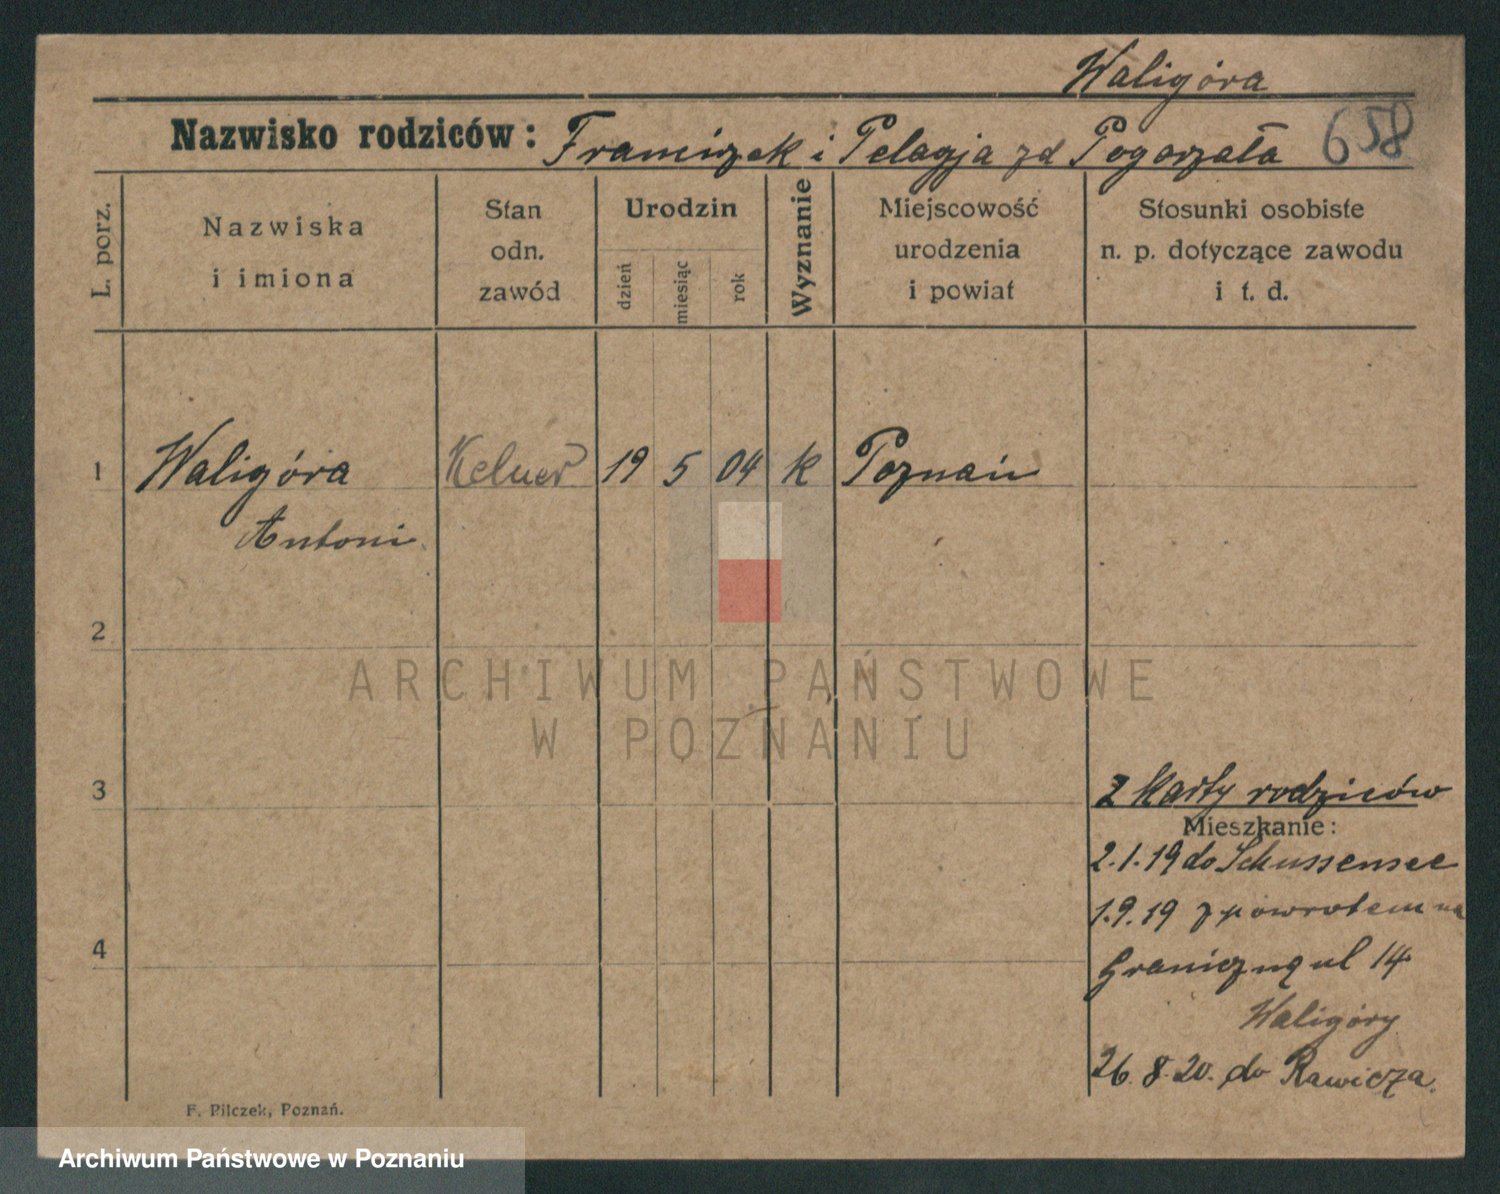 Waligóra
Nazwisko rodziców: Franciszek i Pelagja zd Pogorzała 658
L. porz.
Nazwiska
i imiona
Stan
odn.
zawód
Urodzin
dzień
miesiąc
rok
Wyznanie
Miejscowość
urodzenia
i powiat
Stosunki osobiste
n. p. dotyczące zawodu
i t. d.
1 Waligóra Kelner 19 5 04 k Poznań
Antoni
2
ARCHIWUM PAŃSTWOWE
W POZNANIU
3
z karty rodziców
Mieszkanie:
2.1.19 do Schussensee
1.9.19 z powrotem na
4
Graniczną ul 14
Waligóry
26.8.20. do Rawicza.
F. Pilczek, Poznań.
Archiwum Państwowe w Poznaniu